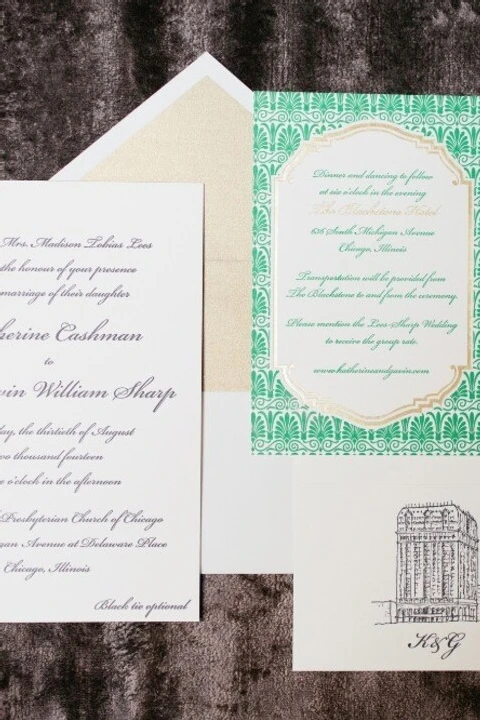 Mrs. Madison Tobias Lees
the honour of your presence
marriage of their daughter
herine Cashman
to
vin William Sharp
ay, the thirtieth of August
wo thousand fourteen
e o'clock in the afternoon
Presbyterian Church of Chicago
gan Avenue at Delaware Place
Chicago, Illinois
Black tie optional
Dinner and dancing to follow
at six o'clock in the evening
The Blackstone Hotel
636 South Michigan Avenue
Chicago, Illinois
Transportation will be provided from
The Blackstone to and from the ceremony.
Please mention the Lees-Sharp Wedding
to receive the group rate.
www.katherineandgavin.com
K&G